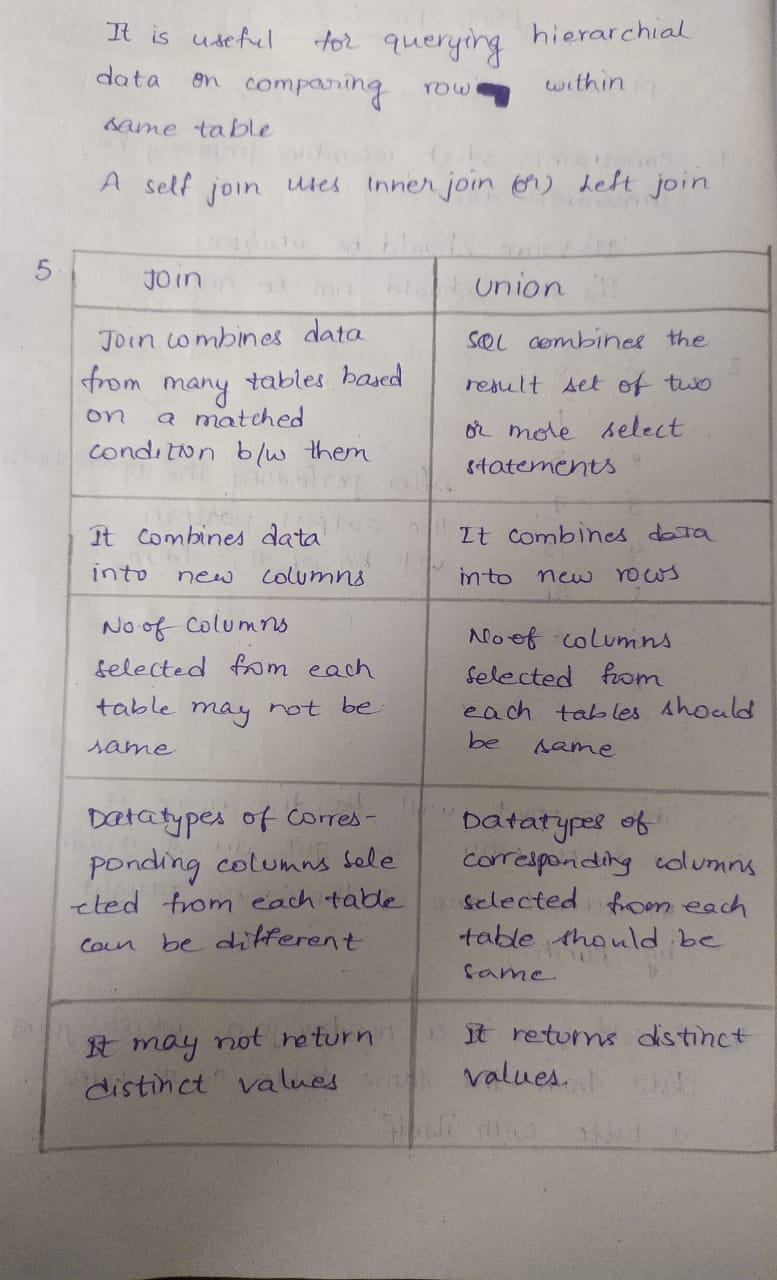 It is useful for querying hierarchial
data on comparing row within
same table
A self join uses inner join (or) Left join
5.
Join
Union
Join combines data
from many tables based
on a matched
condition b/w them
SQL combines the
result set of two
or more select
statements
It combines data
into new columns
It combines data
into new rows
No.of columns
selected from each
table may not be
same
No of columns
selected from
each tables should
be same
Datatypes of corres-
ponding columns sele
-cted from each table
can be different
Datatypes of
corresponding columns
selected from each
table should be
same
It may not return
distinct values
It returns distinct
values.